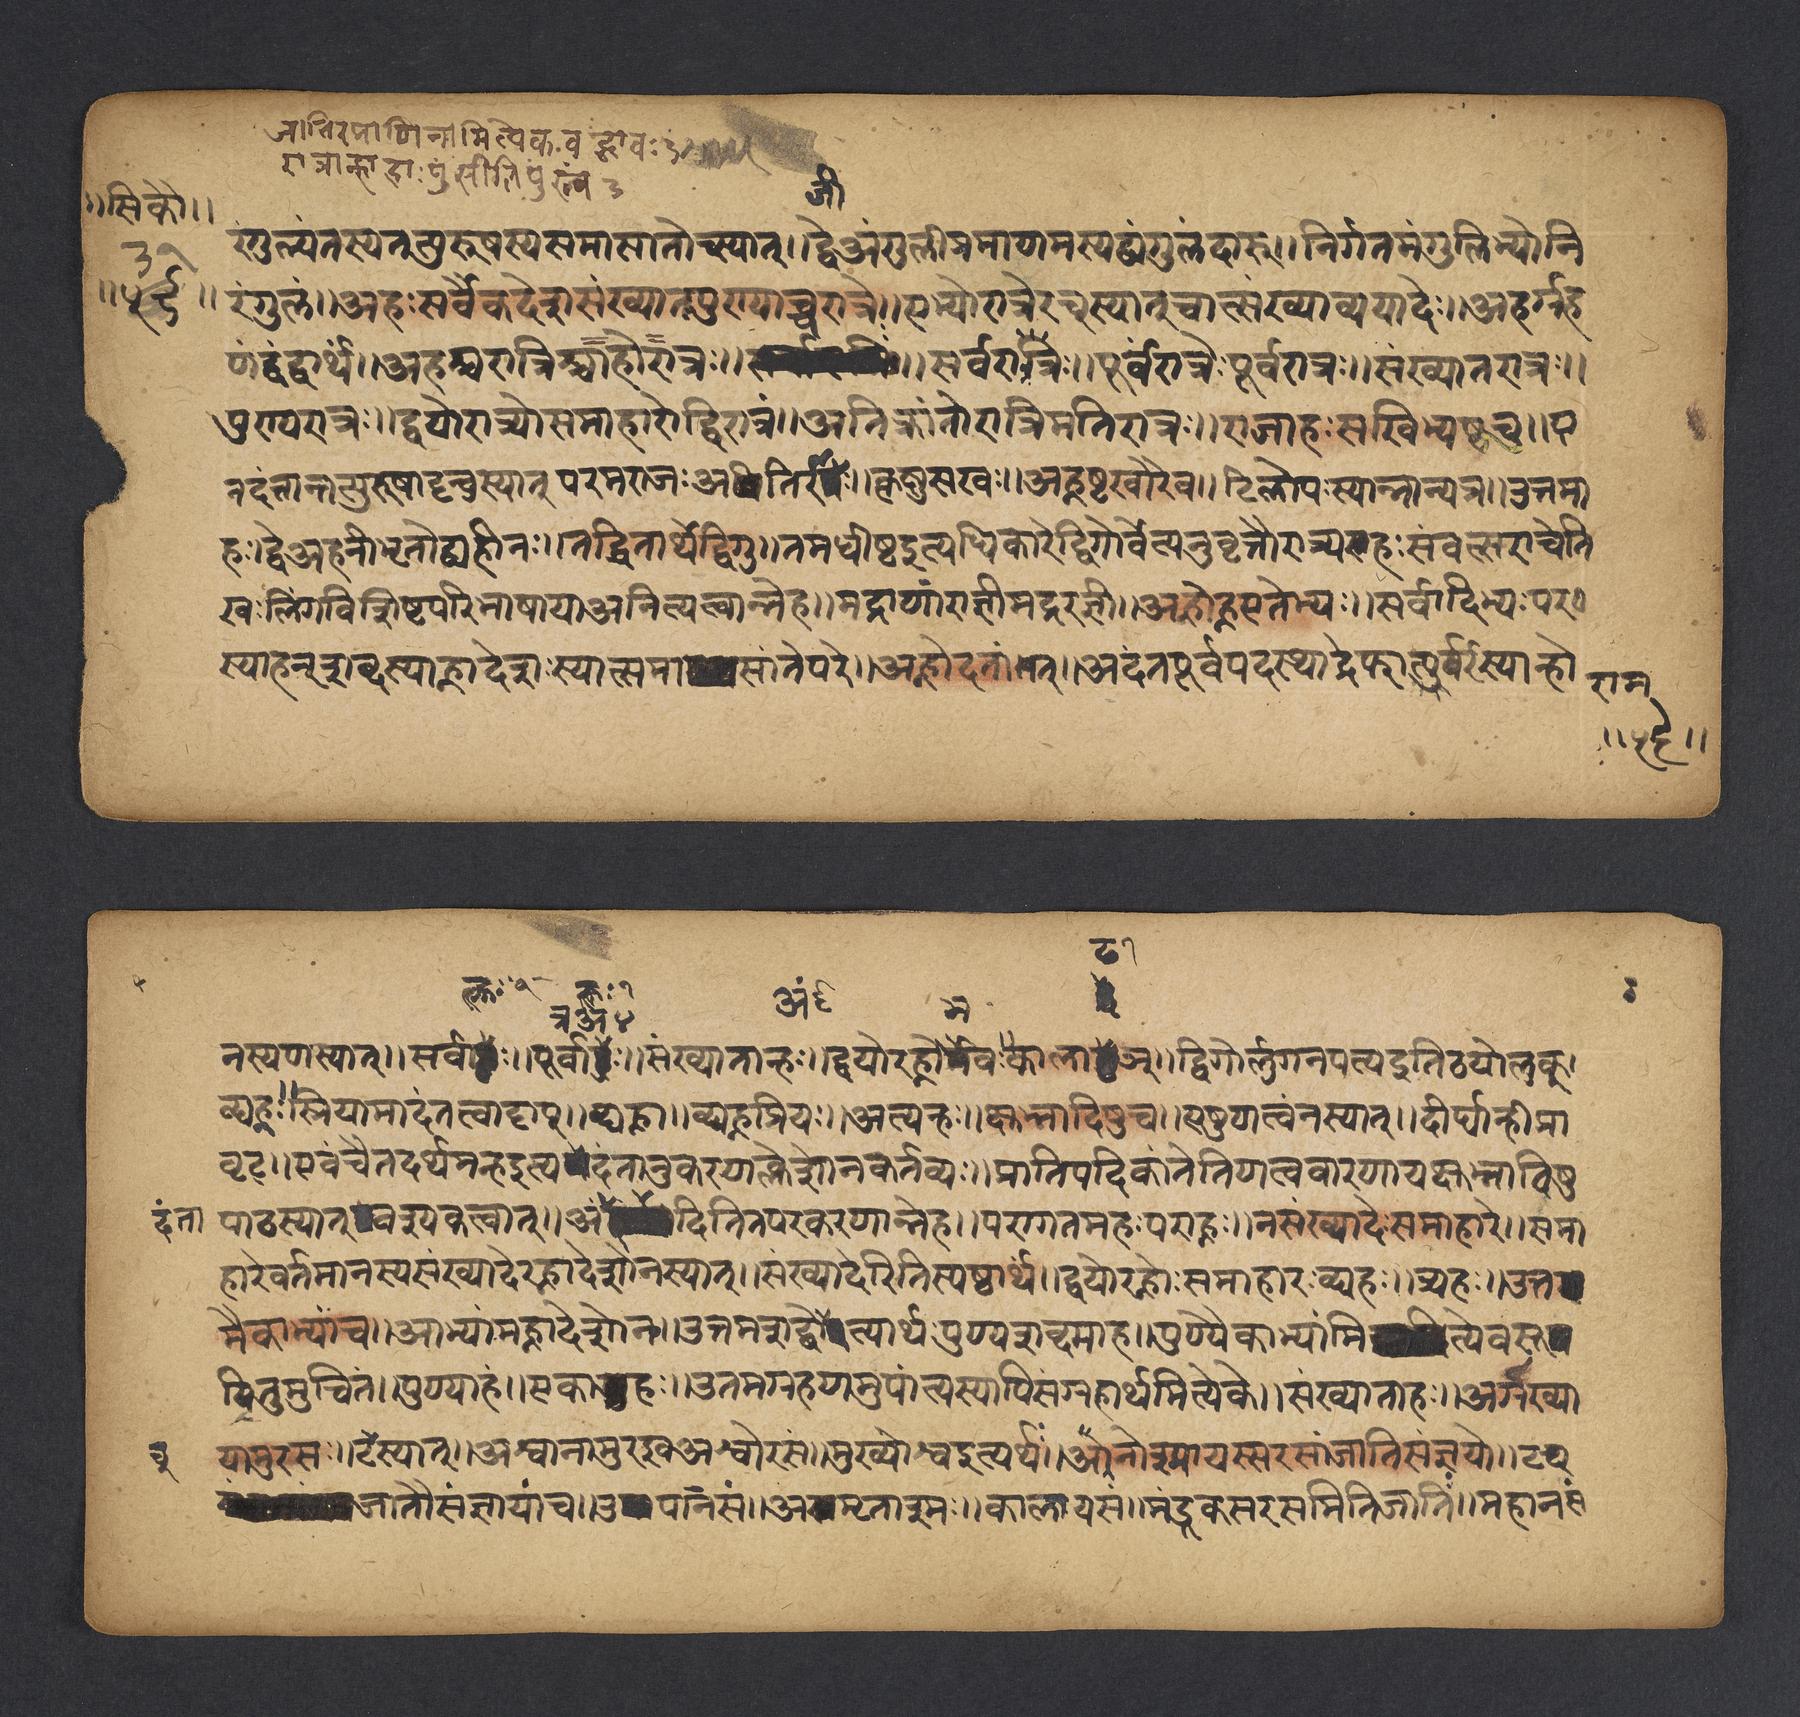 ॥सि कौ॥
रंगुल्यंतस्यतत्पुरूषस्यसमासांतोच्स्यात्॥द्वेअंगुलीप्रमाणमस्यद्व्यंगुलंदारू॥निर्गतमंगुलिभ्योनि
रंगुलं॥अहःसर्वैकदेशसंख्यातपुण्याच्चरात्रेः॥एभ्योरात्रेरच्स्यात्चात्संख्याव्ययादेः॥अहर्ग्रह
णंद्वंद्वार्थं॥अहश्चरात्रिश्चाहोरात्रः॥सर्वरात्रिः॥पूर्वंरात्रेःपूर्वरात्रः॥संख्यातरात्रः॥
पुण्यरात्रः॥द्वयोरात्र्योसमाहारोद्विरात्रं॥अतिक्रांतोरात्रिमतिरात्रः॥राजाहःसखिभ्यष्टच्॥ए
तदंतात्तत्पुरुषाट्टच्स्यात् परमराजः कृष्णसखः॥अह्नष्टखोरेव॥टिलोपःस्यान्नान्यत्र॥उत्तमा
हः॥द्वेअहनीभृतोद्व्यहीनः॥तद्धितार्थेद्विगु॥तमधीष्टइत्यधिकारेद्विगोर्वेत्यनुवृत्तौरात्र्यहःसंवत्सराच्चेति
खःलिंगविशिष्टपरिभाषायाअनित्यत्वान्नेह॥मद्राणांराज्ञीमद्रराज्ञी॥अह्नोह्नएतेभ्यः॥सर्वादिभ्यःपर०
स्याहन्शब्दस्याह्नादेशःस्यात्समासांतेपरे॥अह्नोदंतात्॥अदंतपूर्वपदस्थाद्रेफात्पूर्वस्यान्हो
राम
नस्यणस्यात्॥सर्वाह्णः॥पूर्वाह्णः॥संख्यातान्हः॥द्वयोरह्नोर्भवःकालाठ्ठञ्॥द्विगोर्लुगनपत्यइतिठयोलुक्।
व्द्यह्नः॥स्त्रियामादंतत्वाट्टाप्॥व्द्यह्ना॥व्द्यह्नप्रियः॥अत्यन्हः॥क्षुभ्नादिषुच॥एषुणत्वंनस्यात्॥दीर्घान्हीप्रा
वृट्॥एवंचैतदर्थमन्हइत्यदंतानुकरणक्लेशोनकर्तव्यः॥प्रातिपदिकांतेतिणत्ववारणायक्षुभ्नादिषु
दंता
पाठस्यात् वश्यकत्वात्॥अदितितपरकरणान्नेह॥परागतमहःपराह्नः॥नसंख्यादेःसमाहारे॥समा
हारेवर्तमानस्यसंख्यादेरह्नादेशोनस्यात्॥संख्यादेरितिस्पष्टार्थं॥द्वयोरह्नोःसमाहारःव्द्यहः॥त्र्यहः॥उत्त
मैकाभ्यांच॥आभ्यांमह्नादेशोन॥उत्तमशब्दोत्यार्थःपुण्यशब्दमाह॥पुण्यैकाभ्यांमित्येवसूत्र
यितुमुचितं॥पुण्याहं॥एकाहः॥उत्तमग्रहणमुपांत्यस्यापिसंग्रहार्थमित्येके॥संख्याताहः॥अग्राख्या
यामुरसः॥टंस्यात्॥अश्वानामुरइवअश्वोरसं॥मुख्योश्वइत्यर्थः॥अनोश्मायस्सरसांजातिसंज्ञयो॥टच्
जातौसंज्ञायांच॥उपानसं॥अमृताश्मः॥कालायसं॥मंडूकसरसमितिजातिः॥महानसं